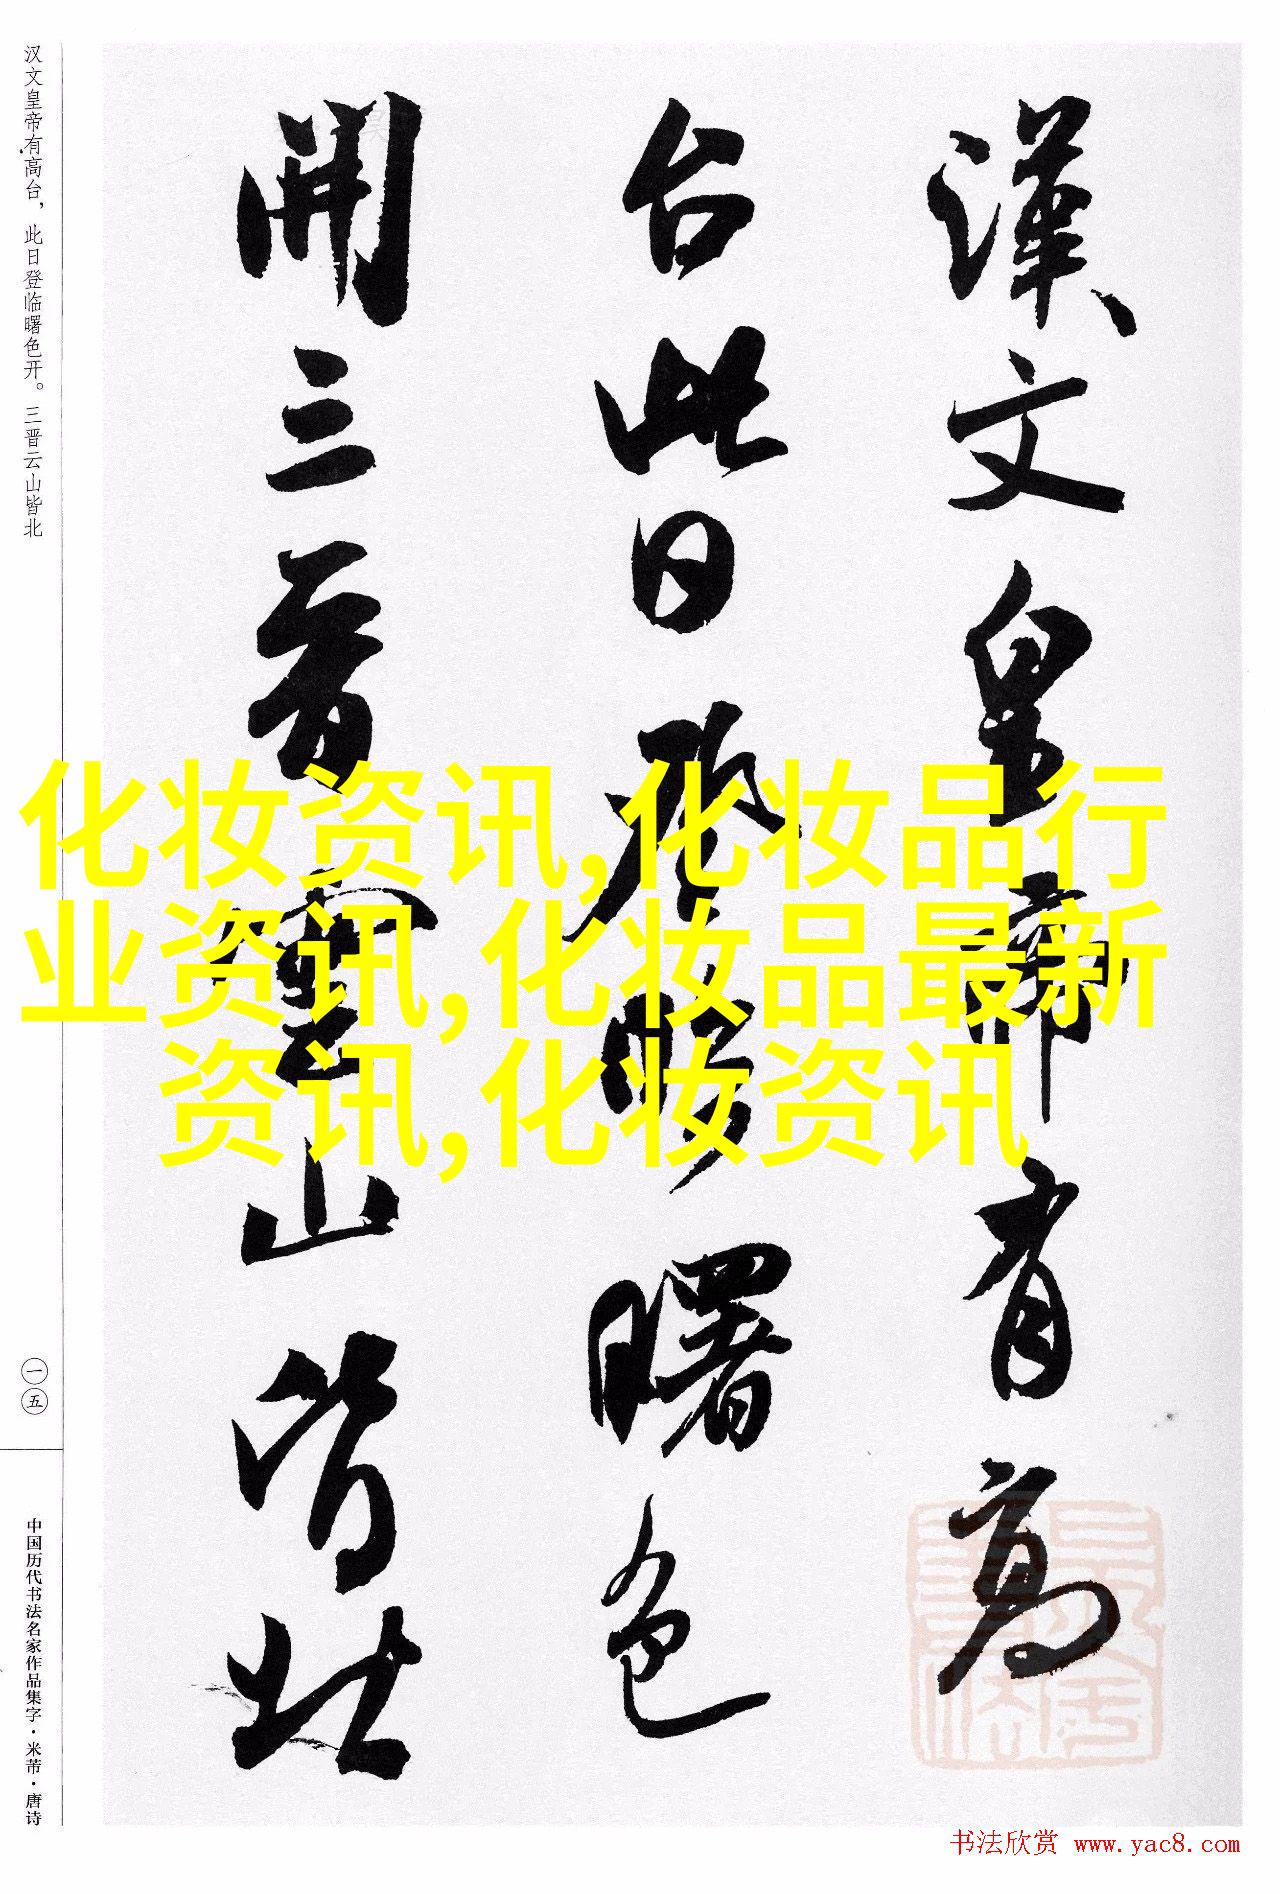 漢文皇帝有高
台此日登臨曙色
開三晉雲山皆北
汉文皇帝有高台，此日登临曙色开。三晋云山皆北
一五
中国历代书法名家作品集字·米芾·唐诗
化妆资讯,化妆品行
业资讯,化妆品最新
资讯,化妆资讯
书法欣赏 www.yac8.com